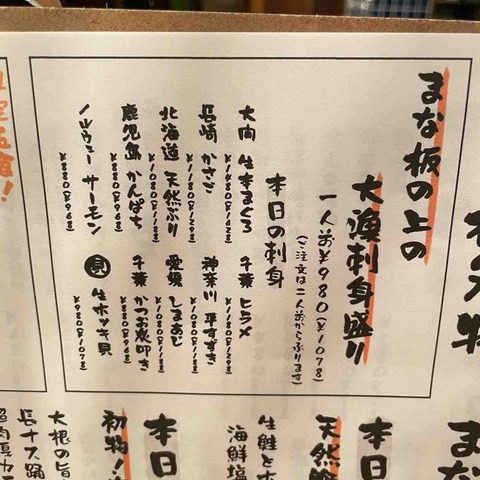 まな板の上の
大漁刺身盛り
一人前¥980(¥1078)
(ご注文は二人前からぶります)
本日の刺身
大間 生本まぐろ
¥1480(¥1628)
長崎 かさご
¥1180(¥1298)
北海道 天然ぶり
¥1080(¥1188)
鹿児島 かんぱち
¥880(¥968)
ノルウェー サーモン
¥880(¥968)
千葉 ヒラメ
¥1180(¥1298)
神奈川 平すずき
¥1080(¥1188)
愛媛 しまあじ
¥1080(¥1188)
千葉 かつお炭叩き
¥880(¥968)
貝 生ホッキ貝
¥980(¥1078)
まな
本日
天然
生鮭とホ
海鮮塩
本日
初物!
大根の旨
長ナス踊